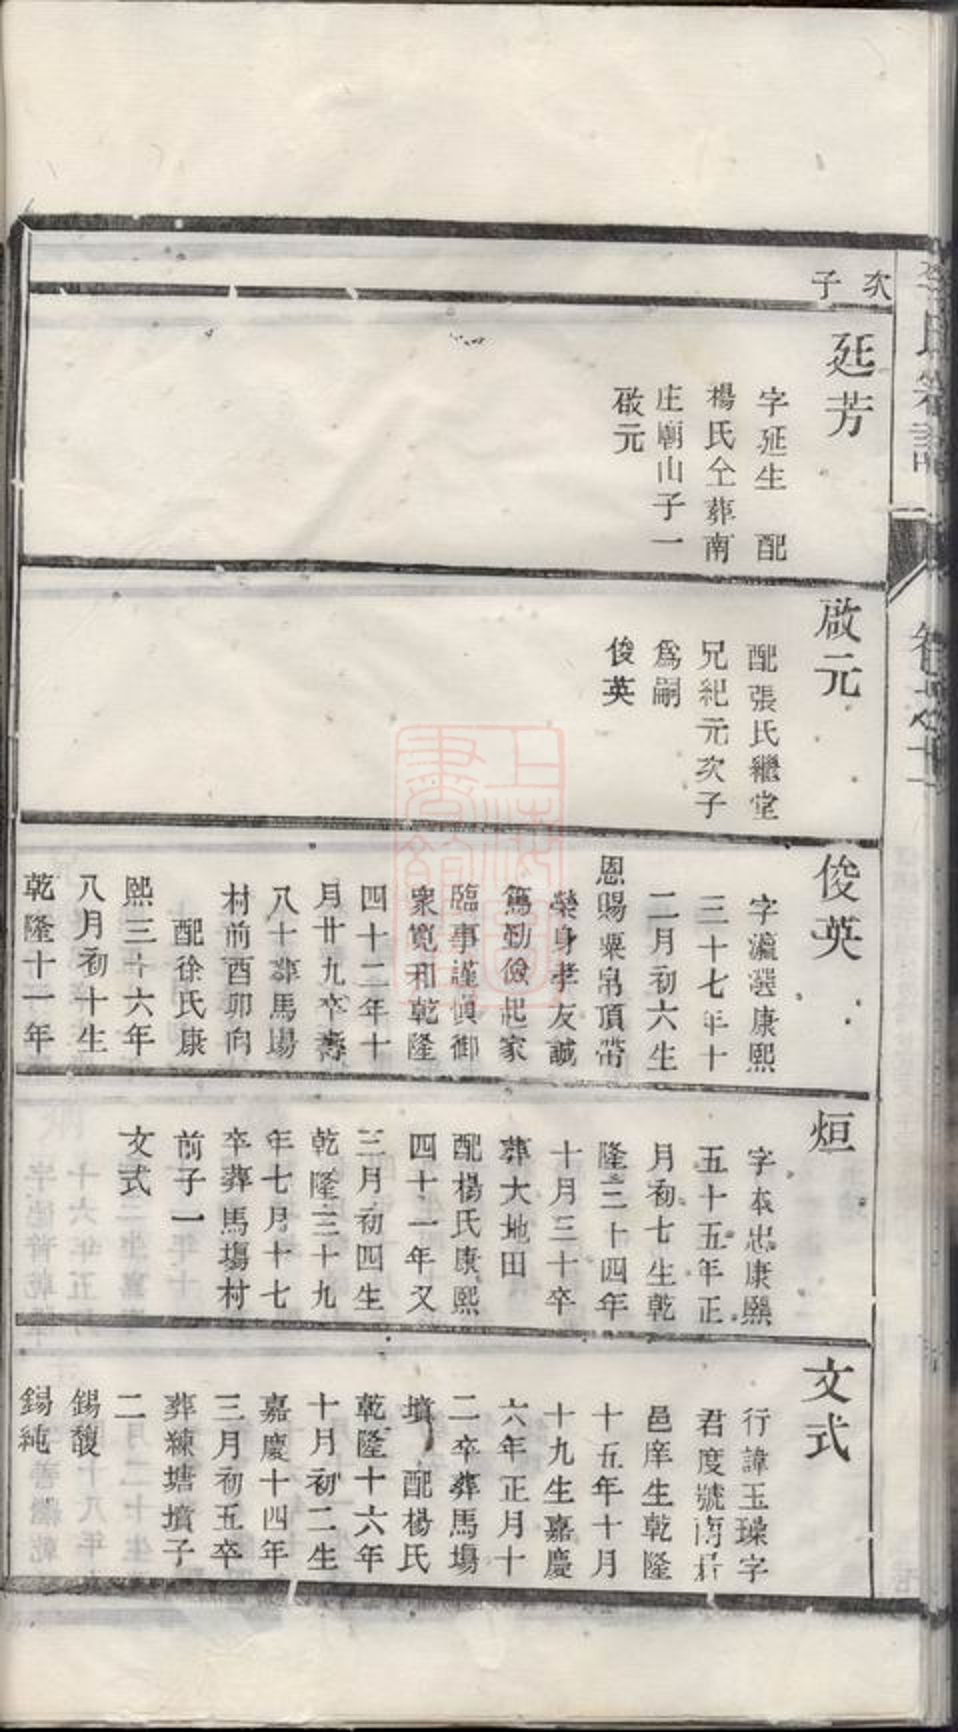 次子
廷芳
字延生 配
楊氏仝葬南
庄廟山子一
啟元
啟元
配張氏繼堂
兄紀元次子
為嗣
俊英
俊英
字瀛選康熙
三十七年十
二月初六生
恩賜粟帛頂帶
榮身孝友誠
篤勤儉起家
臨事謹慎御
衆寬和乾隆
四十二年十
月廿九卒壽
八十葬馬塲
村前酉卯向
配徐氏康
熙三十六年
八月初十生
乾隆十一年
烜
字本忠康熙
五十五年正
月初七生乾
隆三十四年
十月三十卒
葬大地田
配楊氏康熙
四十一年又
三月初四生
乾隆三十九
年七月十七
卒葬馬塲村
前子一
文式
文式
行諱玉璪字
君度號南
邑庠生乾隆
十五年十月
十九生嘉慶
六年正月十
二卒葬馬塲
墳 配楊氏
乾隆十六年
十月初二生
嘉慶十四年
三月初五卒
葬練塘墳子
二
錫馥
錫純